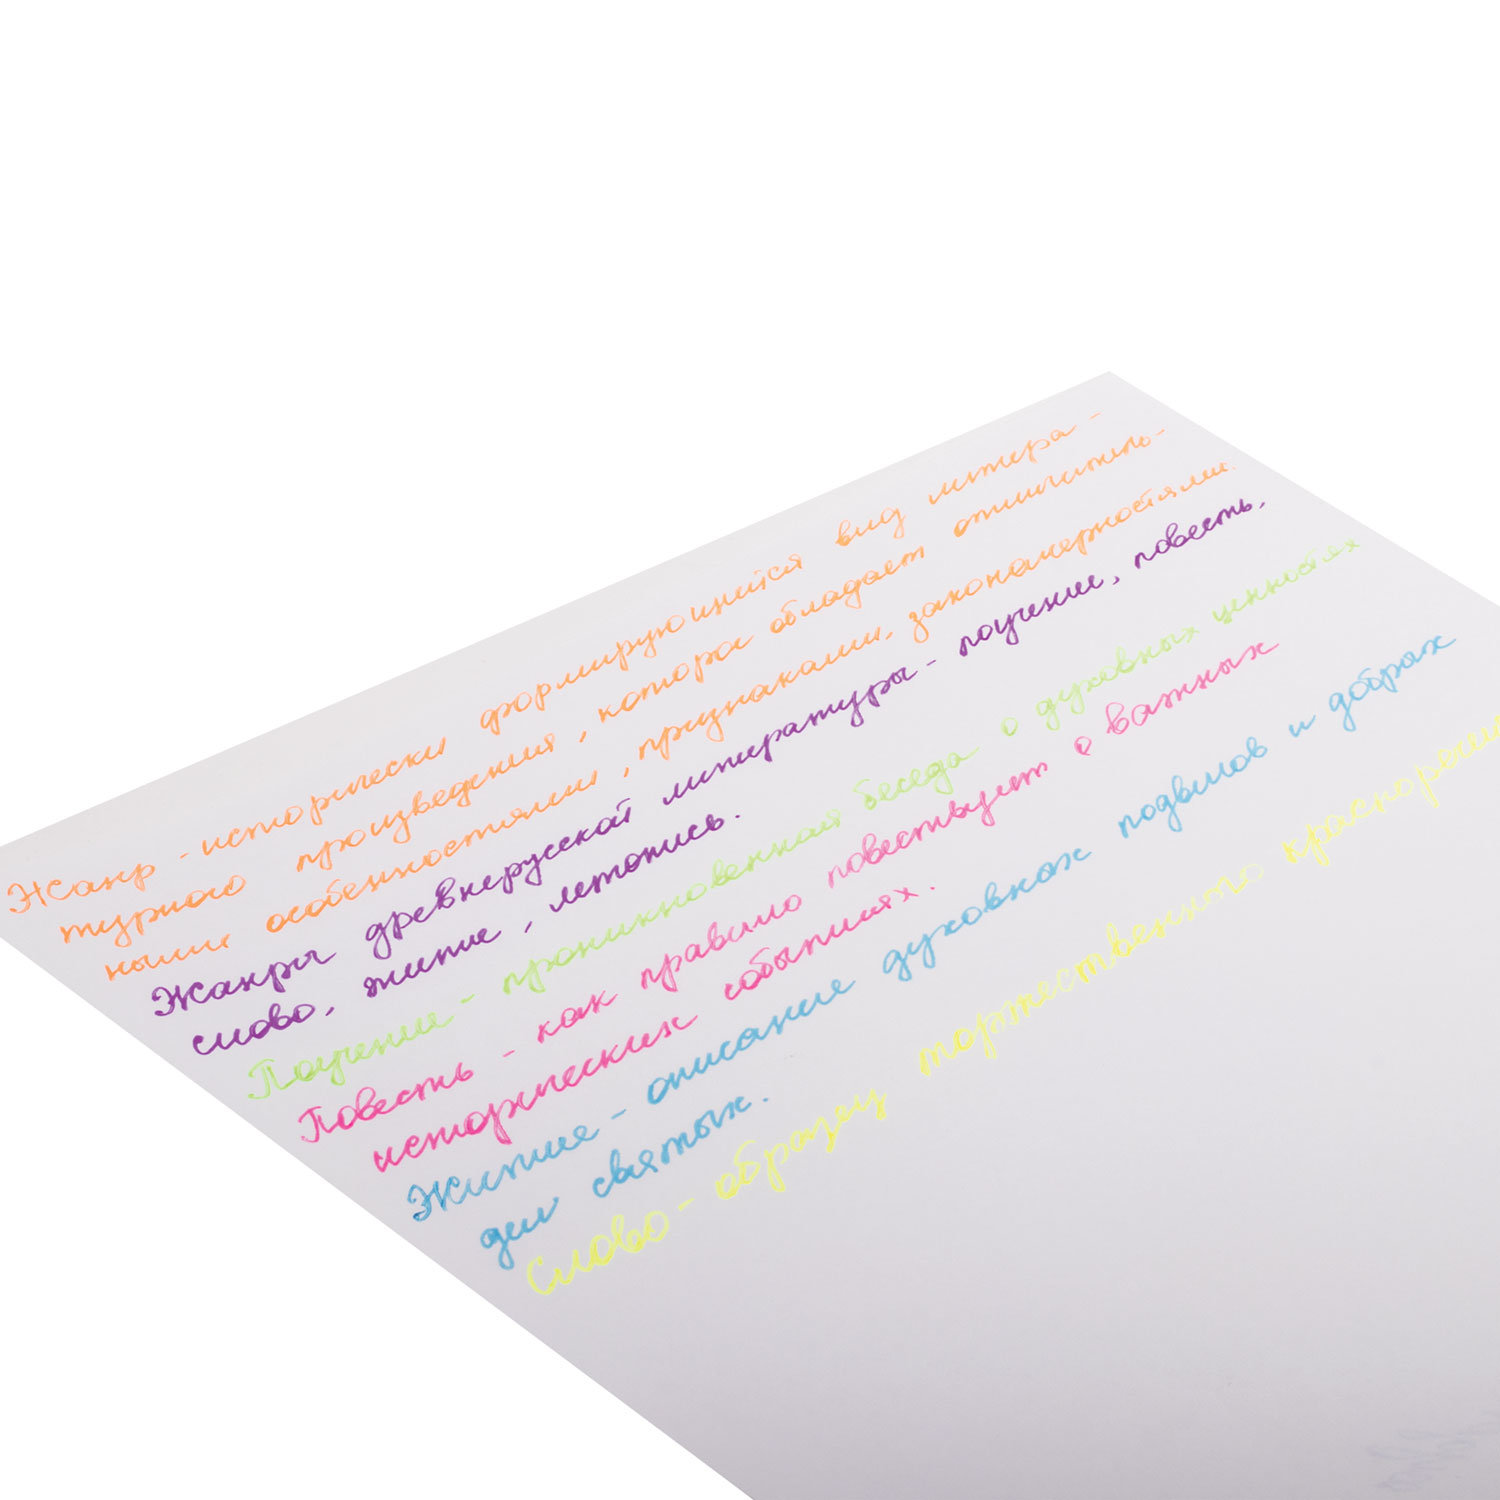 Жанр - исторически формирующийся вид литера-
турного произведения, которое обладает отличитель-
ными особенностями, признаками, закономерностями.
Жанры древнерусской литературы - поучение, повесть,
слово, житие, летопись.
Поучение - проникновенная беседа о духовных ценностях
Повесть - как правило повествует о важных
исторических событиях.
Житие - описание духовных подвигов и добрых
дел святых.
Слово - образец торжественного